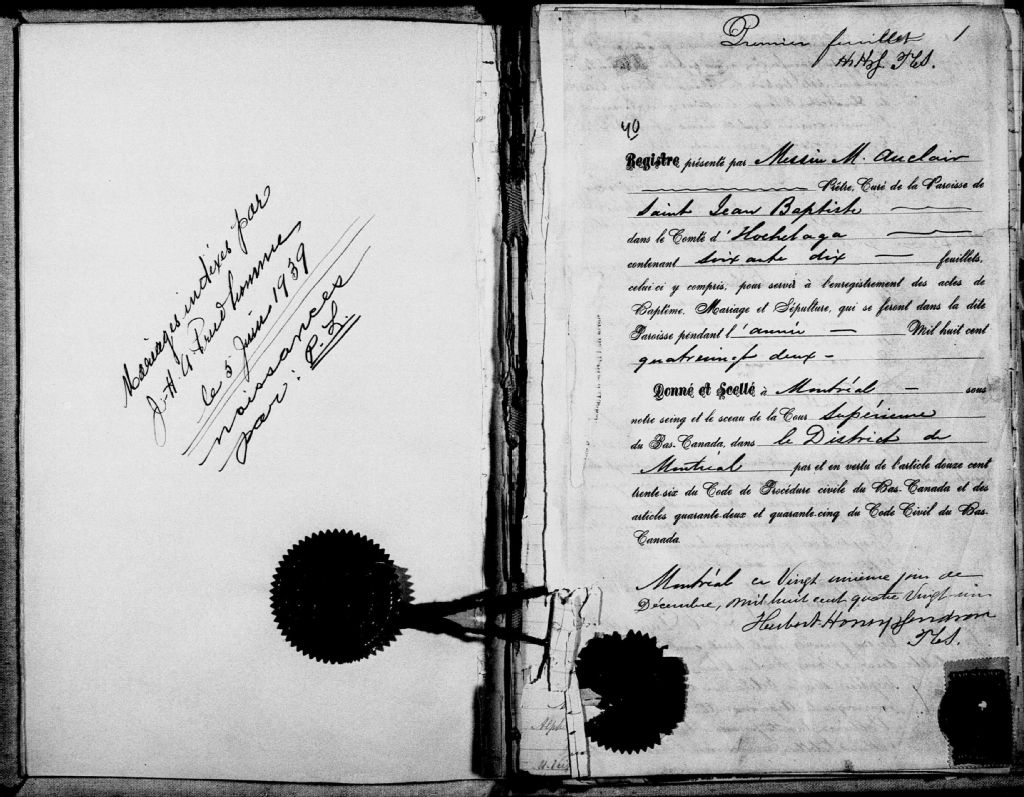 Mariages indexés par
J-H. A Prud'homme
le 5 Juin 1939
naissances
par : P. L.
Premier feuillet 1
HHG. TCS.
70
Registre présenté par Messire M. Auclair
Prêtre, Curé de la Paroisse de
Saint Jean Baptiste
dans le Comté d'Hochelaga
contenant soixante dix feuillets,
celui-ci y compris, pour servir à l'enregistrement des actes de
Baptême, Mariage et Sépulture, qui se feront dans la dite
Paroisse pendant l'année — Mil huit cent
quatrevingt deux -
Donné et Scellé à Montréal — sous
notre seing et le sceau de la Cour Supérieure
du Bas-Canada, dans le District de
Montréal par et en vertu de l'article douze cent
trente-six du Code de Procédure civile du Bas-Canada et des
articles quarante-deux et quarante-cinq du Code Civil du Bas-
Canada.
Montréal ce Vingt unieme jour de
Décembre, mil huit cent quatre vingt un
Herbert Honey Gendron
TCS.
Alph